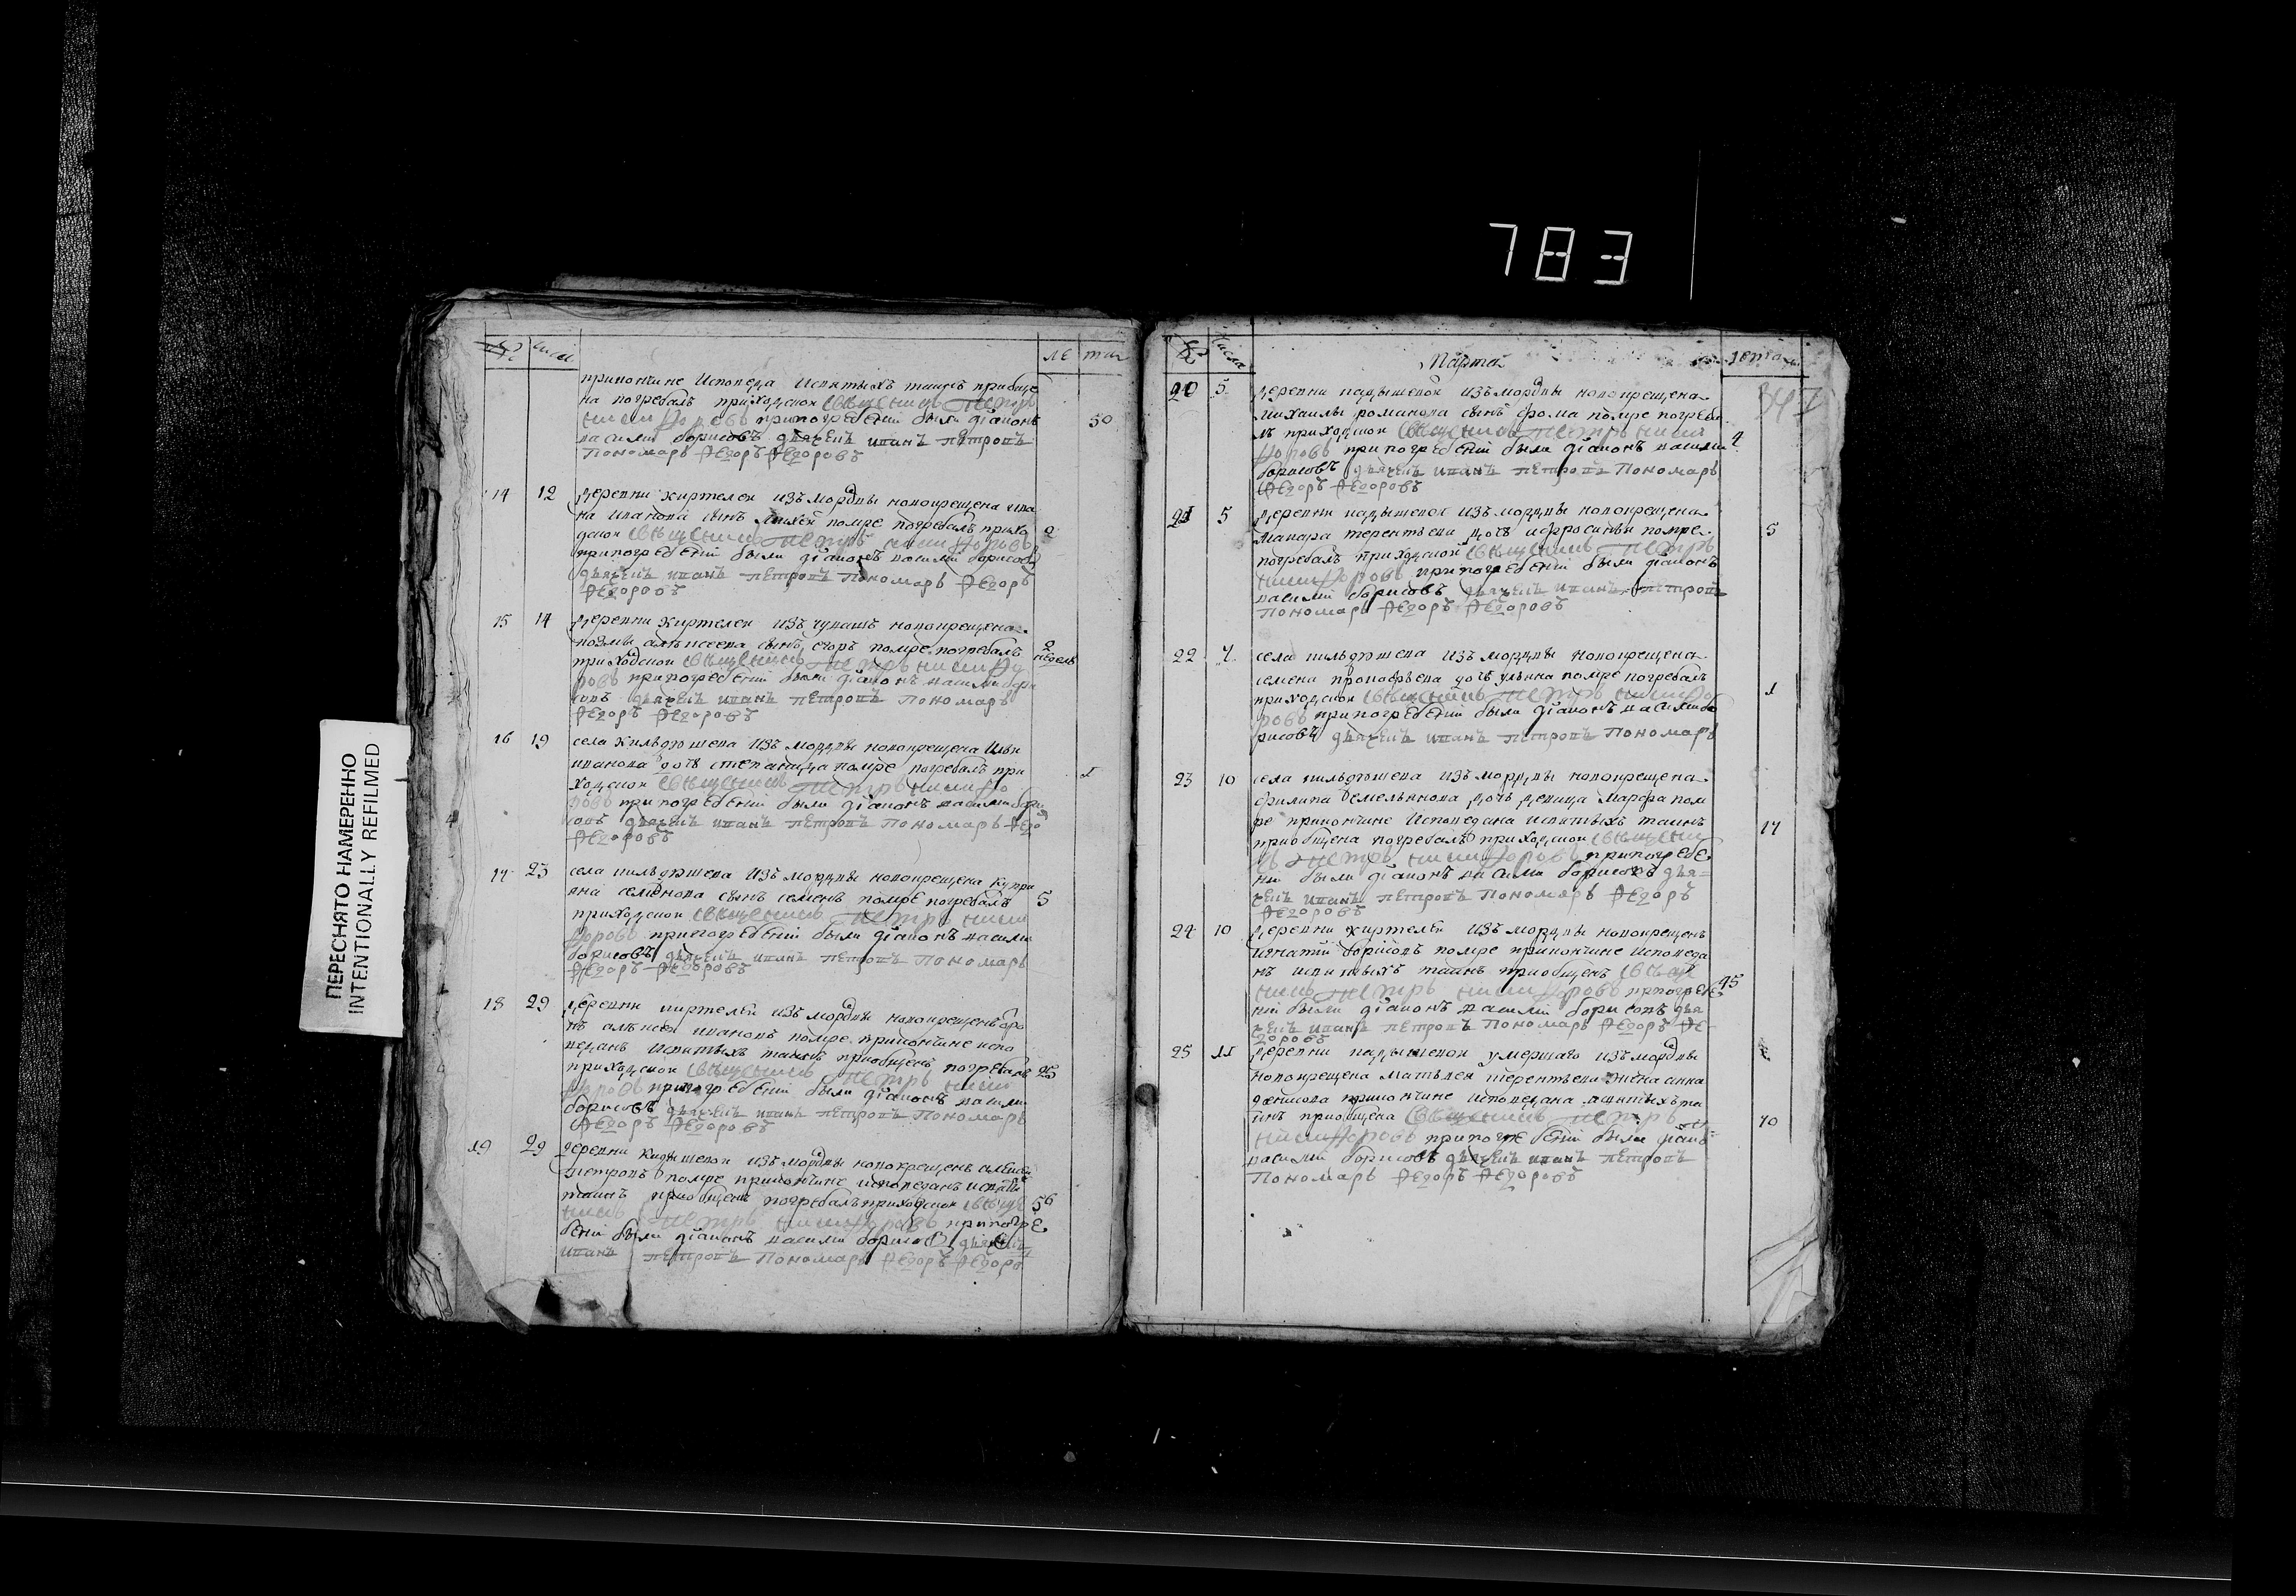 783
ПЕРЕСНЯТО НАМЕРЕННО
INTENTIONALLY REFILMED
№ числ
ле та
прикончине исповеда исвятыхъ таинъ приобще
на погребалъ приходскои свещенникъ Петръ
никифоровъ припогребении были дiаконъ 50
василии борисовъ дьячекъ иванъ петровъ
Пономарь Федоръ Федоровъ
14 12 деревни киртелеи изъ мордвы новокрещена ива
на иванова сынъ помре погребалъ прихо 2
дскои свещенникъ Петръ никифоровъ
припогребении были дiаконъ василии борисовъ
дьячекъ иванъ петровъ Пономарь Федоръ
Федоровъ
15 14 деревни киртелеи изъ чувашъ новокрещена
козмы алексеева сынъ егоръ помре погребалъ 2 неделъ
приходскои свещенникъ Петръ никифо
ровъ припогребении были дiаконъ василии бори
совъ дьячекъ иванъ петровъ Пономарь
Федоръ Федоровъ
16 19 села кильдюшева изъ мордвы новокрещена
иванова дочь степанида помре погребалъ при 1
ходскои свещенникъ Петръ никифо
ровъ припогребении были дiаконъ василии бори
совъ дьячекъ иванъ петровъ Пономарь Федо
Федоровъ
17 23 села кильдюшева изъ мордвы новокрещена купри
яна семенова сынъ семенъ помре погребалъ 5
приходскои свещенникъ Петръ ники
форовъ припогребении были дiаконъ василии
борисовъ дьячекъ иванъ петровъ Пономарь
Федоръ Федоровъ
18 29 деревни киртелеи изъ мордвы новокрещенъ
алексеи ивановъ помре прикончине испо
веданъ исвятыхъ таинъ приобщенъ погребалъ
приходскои свещенникъ Петръ ники 25
форовъ припогребении были дiаконъ василии
борисовъ дьячекъ иванъ петровъ Пономарь
Федоръ Федоровъ
19 29 деревни кадышевои изъ мордвы новокрещенъ
петровъ помре прикончине исповеданъ исвяты
таинъ приобщенъ погребалъ приходскои свеще 56
никъ Петръ никифоровъ припогре
бении были дiаконъ василии борисовъ дьячекъ
иванъ петровъ Пономарь Федоръ Федоро
№ числа Марта лета
347
20 5 деревни кадышевои изъ мордвы новокрещена
михаилы романова сынъ фома помре погреба
лъ приходскои свещенникъ Петръ ники 4
форовъ припогребении были дiаконъ василии
борисовъ дьячекъ иванъ петровъ Пономарь
Федоръ Федоровъ
21 5 деревни кадышевои изъ мордвы новокрещена
макара терентьева дочь ифросинья помре 5
погребалъ приходскои свещенникъ Петръ
никифоровъ припогребении были дiаконъ
василии борисовъ дьячекъ иванъ петровъ
Пономарь Федоръ Федоровъ
22 7 села кильдюшева изъ мордвы новокрещена
семена прокофьева дочь ульяна помре погребалъ
приходскои свещенникъ Петръ никифо 1
ровъ припогребении были дiаконъ василии бо
рисовъ дьячекъ иванъ петровъ Пономарь
23 10 села кильдюшева изъ мордвы новокрещена
филипа емельянова дочь девица марфа пом
ре прикончине исповедана исвятыхъ таинъ 17
приобщена погребалъ приходскои свещенни
къ Петръ никифоровъ припогребе
нии были дiаконъ василии борисовъ дья
чекъ иванъ петровъ Пономарь Федоръ
Федоровъ
24 10 деревни киртелеи изъ мордвы новокрещенъ
игнатии борисовъ помре прикончине исповеда
нъ исвятыхъ таинъ приобщенъ свеще
никъ Петръ никифоровъ припогребе 45
нии были дiаконъ василии борисовъ дья
чекъ иванъ петровъ Пономарь Федоръ Фе
доровъ
25 11 деревни кадышевои умершаго изъ мордвы
новокрещена матвея терентьева жена анна
денисова прикончине исповедана исвятыхъ та
инъ приобщена свещенникъ Петръ 70
никифоровъ припогребении были дiаконъ
василии борисовъ дьячекъ иванъ петровъ
Пономарь Федоръ Федоровъ